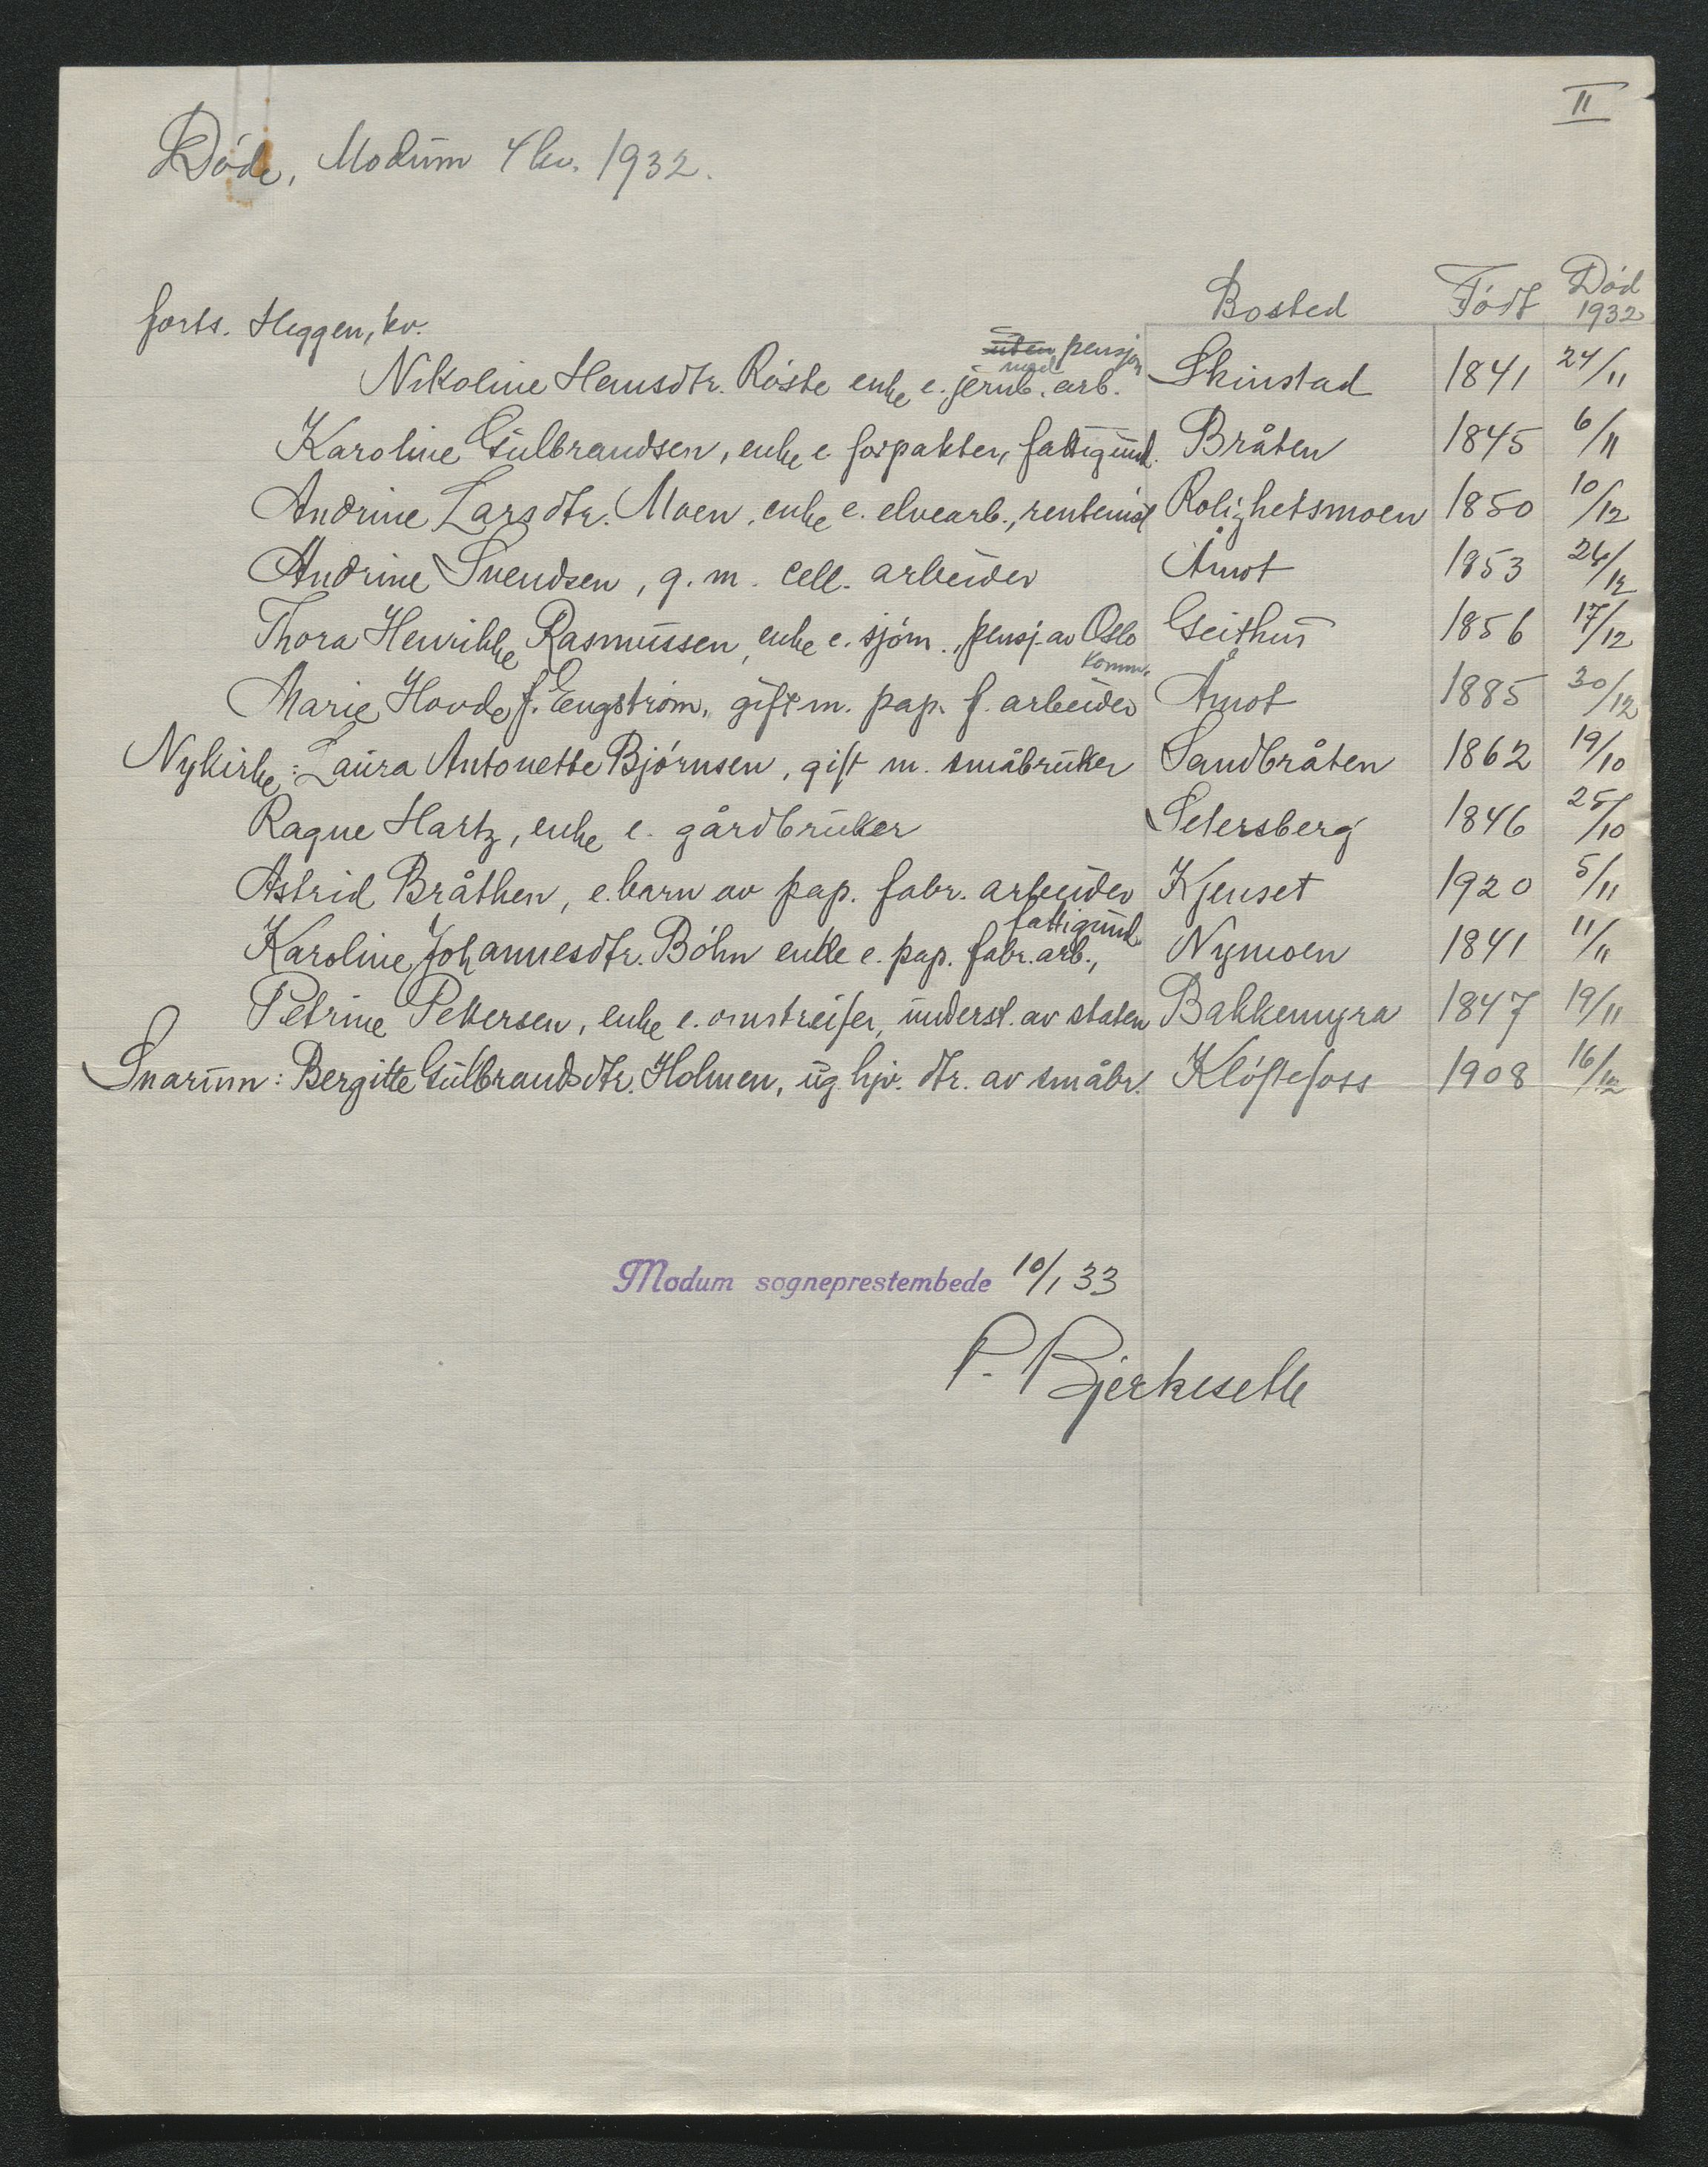 II
Døde, Modum 4 kv. 1932.
Bosted Født Død 1932
forts. Heggen, kv.
uten pensjon
med
Nikoline Hansdtr. Røste enke e. jernb. arb. Skinstad 1841 24/11
Karoline Gulbrandsen, enke e. forpakter, fattigund. Bråten 1845 6/11
Andrine Larsdtr. Moen, enke e. elvearb., rentenist Rolighetsmoen 1850 10/12
Andrine Svendsen, g. m. cell. arbeider Åmot 1853 26/12
Thora Henrikke Rasmussen, enke e. sjøm., pensj. av Oslo Geithus 1856 17/12
komm.
Marie Hovde f. Engstrøm, gift m. pap. f. arbeider Åmot 1885 30/12
Nykirke: Laura Antonette Bjørnsen, gift m. småbruker Sandbråten 1862 19/10
Ragne Hartz, enke e. gårdbruker Selersberg 1846 25/10
Astrid Bråthen, e. barn av pap. fabr. arbeider Kjenset 1920 5/11
fattigund.
Karoline Johannesdtr. Bøhn enke e. pap. fabr. arb., Nymoen 1841 11/11
Petrine Pettersen, enke e. omstreifer, underst. av staten Bakkemyra 1847 19/11
Snarum: Bergitte Gulbrandsdtr. Holmen, ug. hjv. dtr. av småbr. Kløftefoss 1908 16/12
Modum sogneprestembede 10/1 33
P. Bjerkeseth